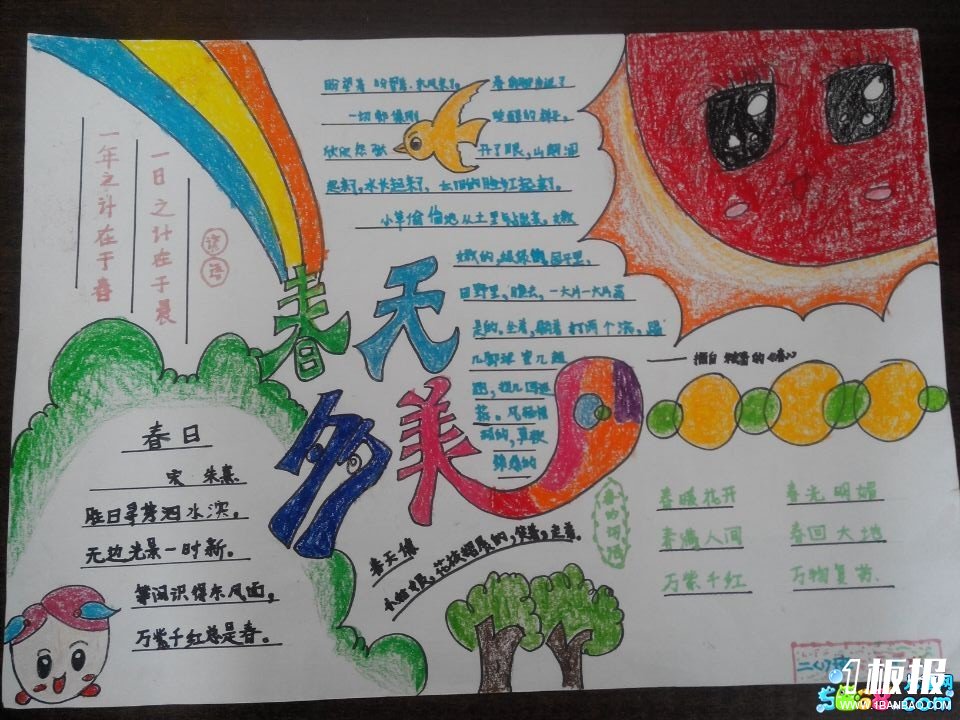 一年之计在于春
一日之计在于晨
谚语
盼望着 盼望着,东风来了。春天的脚步近了
一切都像刚 睡醒的样子。
欣欣然张 开了眼,山朗润
起来了,水长起来了,太阳的脸红起来了。
小草偷偷地从土里钻出来,嫩
嫩的,绿绿的,园子里,
田野里,瞧去,一大片一大片满
是的。坐着,躺着 打两个滚,踢
几脚球 赛几趟
跑,捉几回迷
藏。风轻悄
悄的,草软
绵绵的
摘自 《春》
春天多美
春日
宋 朱熹
胜日寻芳泗水滨,
无边光景一时新。
等闲识得东风面,
万紫千红总是春。
春天像
小姑娘,花枝招展的,笑着,走着。
春的词语
春暖花开 春光明媚
春满人间 春回大地
万紫千红 万物复苏
二(7)
1板报
WWW.1BANBAO.COM